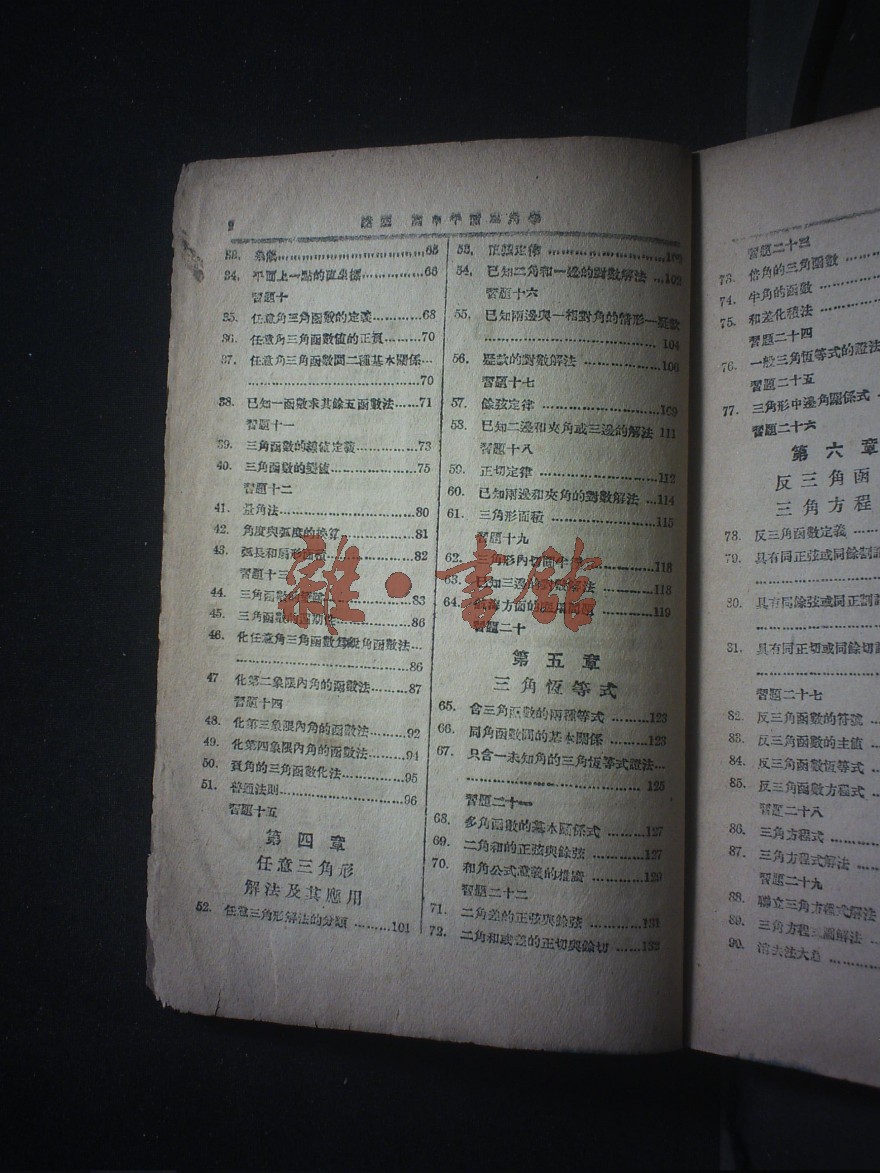 2
高中平面三角學
33. 象限……65
34. 平面上一點的直坐標……66
習題十
35. 任意角三角函數的定義……68
36. 任意角三角函數值的正負……70
37. 任意角三角函數間二種基本關係…
……70
38. 已知一函數求其餘五函數法……71
習題十一
39. 三角函數的線值定義……73
40. 三角函數的變值……75
習題十二
41. 量角法……80
42. 角度與弧度的換算……81
43. 弧長和扇形面積……82
習題十三
44. 三角函數的……83
45. 三角函數的週期性……86
46. 化任意角三角函數為銳角函數法…
……86
47. 化第二象限內角的函數法……87
習題十四
48. 化第三象限內角的函數法……92
49. 化第四象限內角的函數法……94
50. 負角的三角函數化法……95
51. 普通法則……96
習題十五
第四章
任意三角形
解法及其應用
52. 任意三角形解法的分類……101
53. 正弦定律……102
54. 已知二角和一邊的對數解法…102
習題十六
55. 已知兩邊與一相對角的情形—疑款
……104
56. 疑款的對數解法……106
習題十七
57. 餘弦定律……109
58. 已知二邊和夾角或三邊的解法 111
習題十八
59. 正切定律……112
60. 已知兩邊和夾角的對數解法…114
61. 三角形面積……115
習題十九
62. 三角形內切圓半徑……118
63. 已知三邊的對數解法……118
64. 航海方面的應用問題……119
習題二十
第五章
三角恆等式
65. 含三角函數的兩種等式……123
66. 同角函數間的基本關係……123
67. 只含一未知角的三角恆等式證法…
……125
習題二十一
68. 多角函數的基本關係式……127
69. 二角和的正弦與餘弦……127
70. 和角公式意義的推廣……129
習題二十二
71. 二角差的正弦與餘弦……131
72. 二角和或差的正切與餘切……132
習題二十三
73. 倍角的三角函數……
74. 半角的函數……
75. 和差化積法……
習題二十四
76. 一般三角恆等式的證法
習題二十五
77. 三角形中邊角關係式
習題二十六
第六章
反三角函
三角方程
78. 反三角函數定義……
79. 具有同正弦或同餘割
……
80. 具有同餘弦或同正割
……
81. 具有同正切或同餘切
……
習題二十七
82. 反三角函數的符號…
83. 反三角函數的主值…
84. 反三角函數恆等式…
85. 反三角函數方程式…
習題二十八
86. 三角方程式……
87. 三角方程式解法……
習題二十九
88. 聯立三角方程式解法
89. 三角方程式圖解法…
90. 消去法大意……
雜·書館